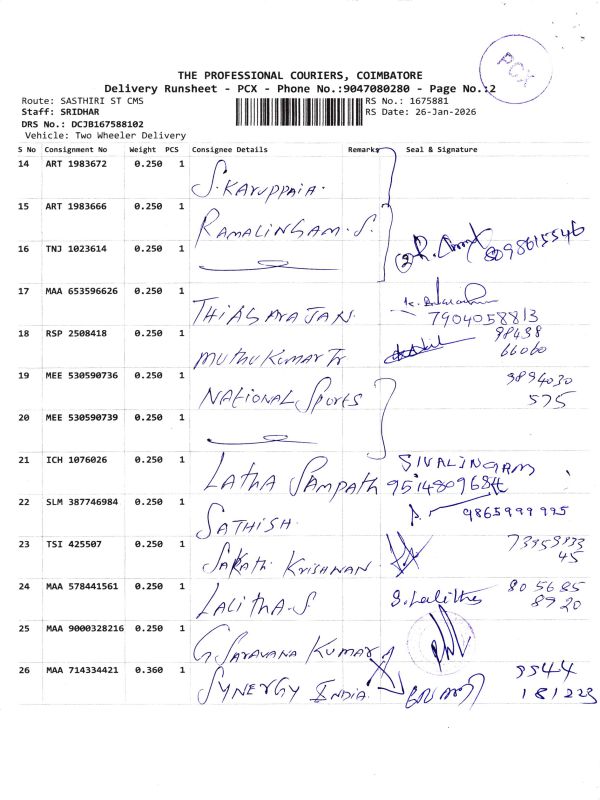 PCX
THE PROFESSIONAL COURIERS, COIMBATORE
Delivery Runsheet - PCX - Phone No.:9047080280 - Page No.:2
Route: SASTHIRI ST CMS
RS No.: 1675881
Staff: SRIDHAR
RS Date: 26-Jan-2026
DRS No.: DCJB167588102
Vehicle: Two Wheeler Delivery
S No Consignment No Weight PCS Consignee Details Remarks Seal & Signature
14 ART 1983672 0.250 1 S. KARUPPAIA.
15 ART 1983666 0.250 1 RAMALINGAM. S.
16 TNJ 1023614 0.250 1 8098615546
17 MAA 653596626 0.250 1 THIAGARAJAN. 7904058813
18 RSP 2508418 0.250 1 MUTHU KUMAR Tr 98438
66060
19 MEE 530590736 0.250 1 NATIONAL SPORTS 9894030
575
20 MEE 530590739 0.250 1
21 ICH 1076026 0.250 1 LATHA SAMPATH SIVALINGAM
22 SLM 387746984 0.250 1 SATHISH. 9865999995
23 TSI 425507 0.250 1 SARATH KRISHNAN
45
24 MAA 578441561 0.250 1 LALITHA.S S. Lalitha 805685
8920
25 MAA 9000328216 0.250 1 G SARAVANA KUMAR
26 MAA 714334421 0.360 1 SYNERGY INDIA. 9944
181223